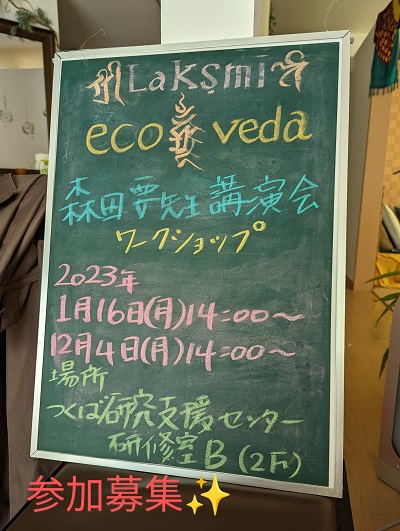 Laksmi
eco veda
森田要先生講演会
ワークショップ
2023年
1月16日(月)14:00～
12月4日(月)14:00～
場所
つくば研究支援センター
研修室B(2F)
参加募集✨